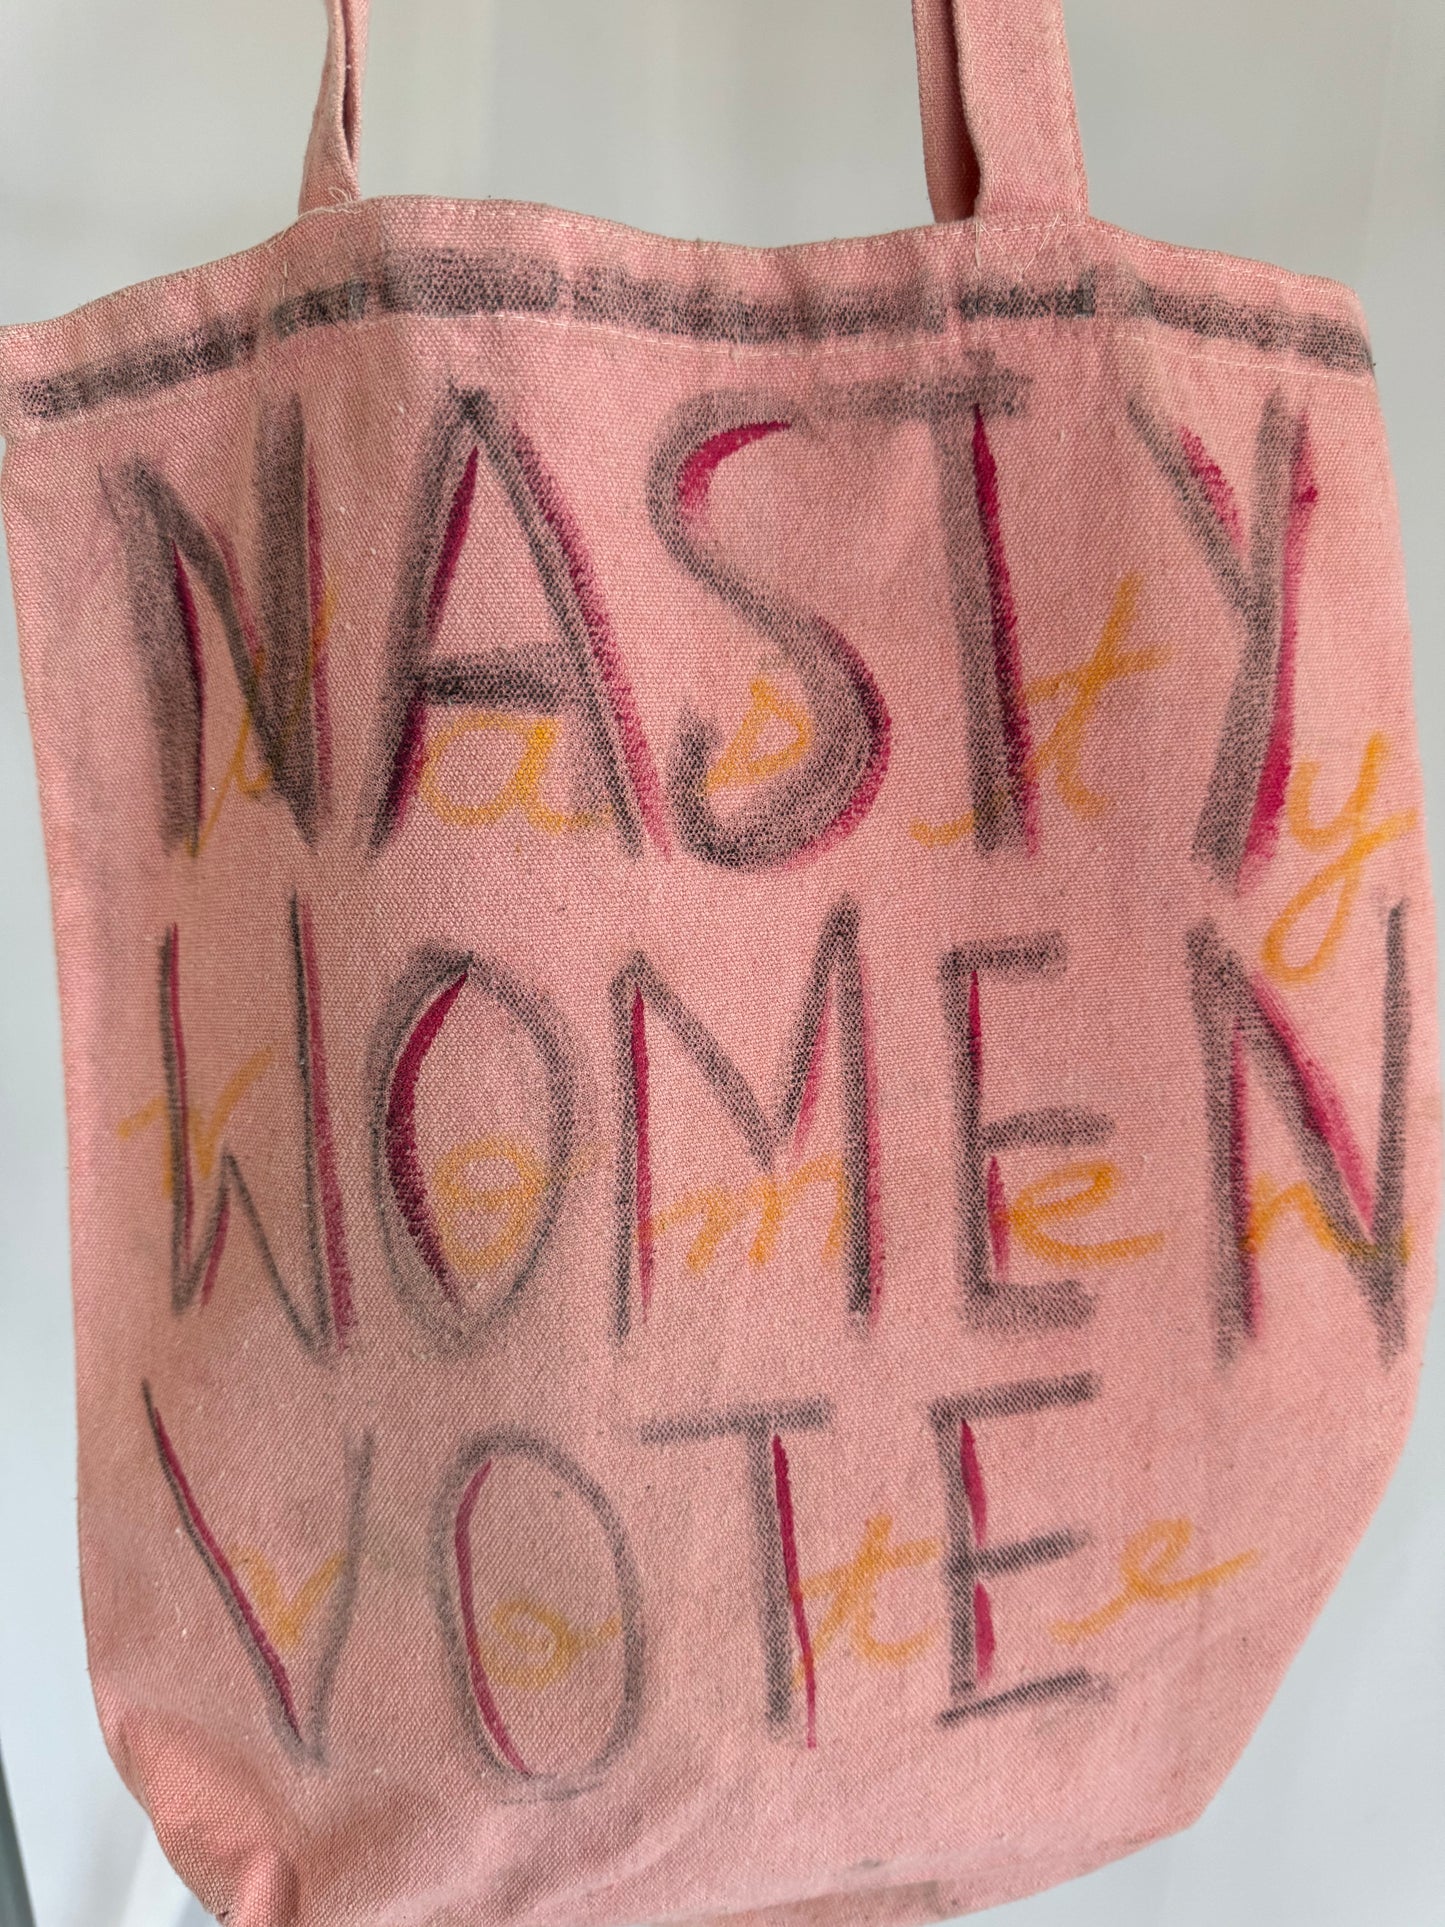 NASTY
nasty
WOMEN
women
VOTE
vote